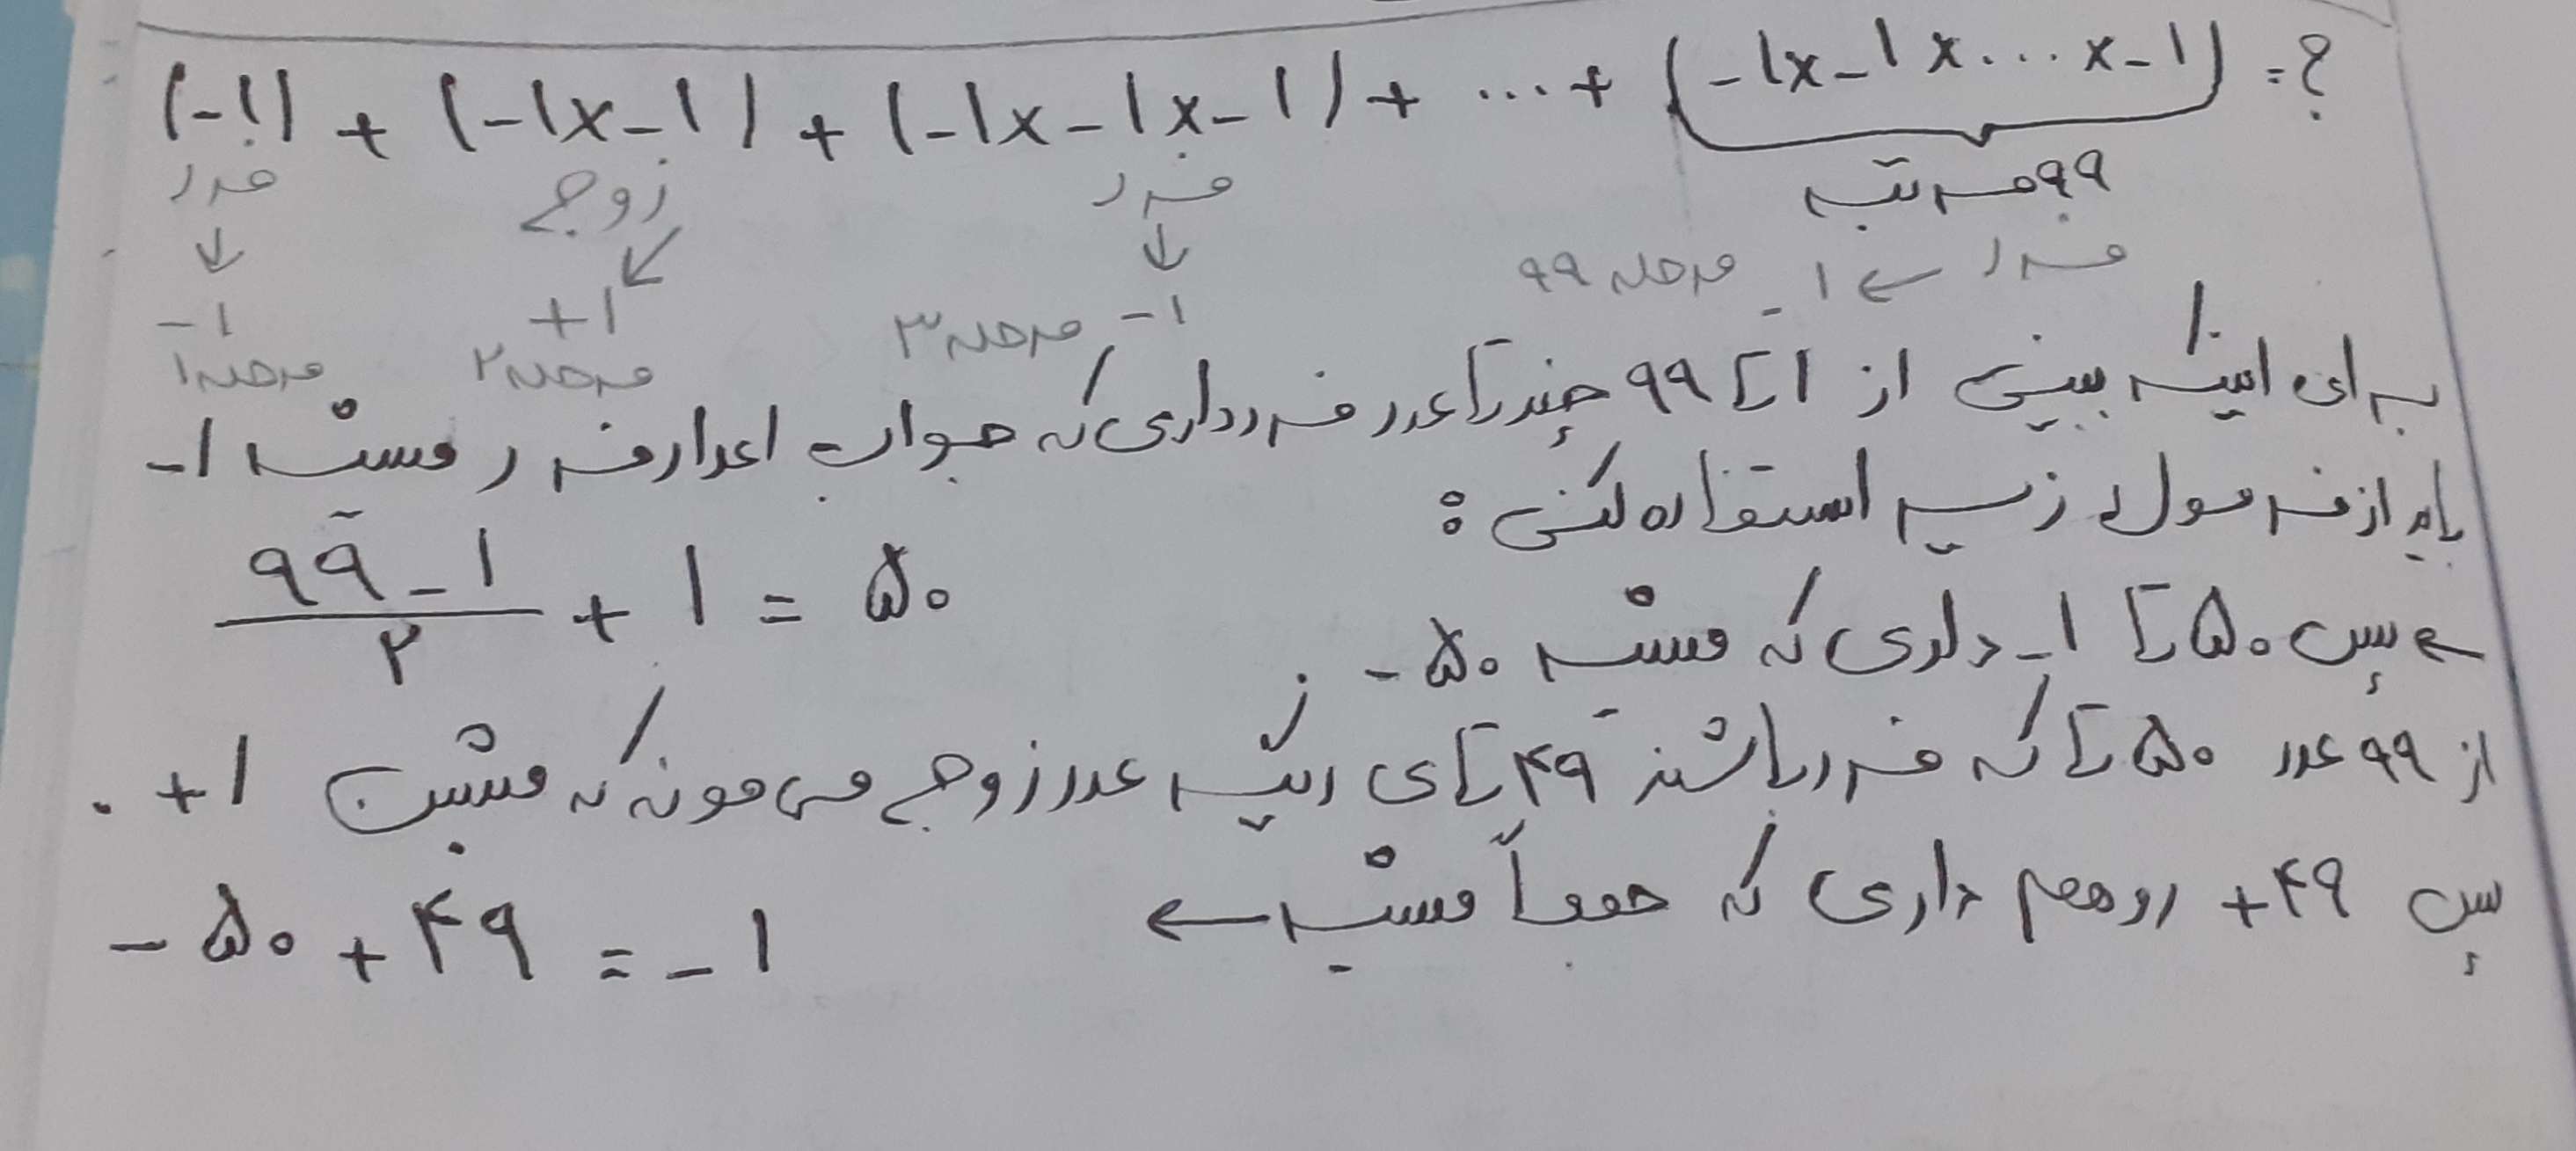 (-۱) + (-۱×-۱) + (-۱×-۱×-۱) + ... + (-۱×-۱×...×-۱) = ؟
۹۹ مرتبه
فرد زوج فرد فرد ← -۱ مرحله ۹۹
↓ ↙ ↓
-۱ +۱ -۱ مرحله ۳
مرحله ۱ مرحله ۲
برای اینکه ببینی از ۱ تا ۹۹ چندتا عدد فرد داری که جواب اعداد فرد میشه -۱
باید از فرمول زیر استفاده کنی :
(۹۹ - ۱)/۲ + ۱ = ۵۰
← پس ۵۰ تا -۱ داری که میشه -۵۰
از ۹۹ عدد ۵۰ تا که فرد باشند ۴۹ تای دیگه عدد زوج می مونه که میشن +۱ .
پس +۴۹ رو هم داری که جمعاً میشه ←
-۵۰ + ۴۹ = -۱